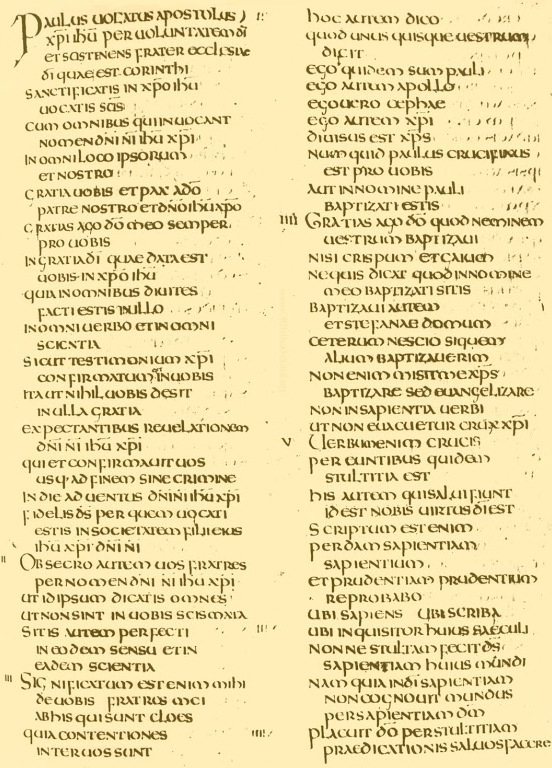 PAULUS UOCATUS APOSTOLUS
XPI IHU PER UOLUNTATEM DI
ET SOSTENES FRATER ECCLESIAE
DI QUAE EST CORINTHI
SANCTIFICATIS IN XPO IHU
UOCATIS SCIS
CUM OMNIBUS QUI INUOCANT
NOMEN DNI NI IHU XPI
IN OMNI LOCO IPSORUM
ET NOSTRO
GRATIA UOBIS ET PAX A DO
PATRE NOSTRO ET DNO IHU XPO
GRATIAS AGO DO MEO SEMPER
PRO UOBIS
IN GRATIA DI QUAE DATA EST
UOBIS IN XPO IHU
QUIA IN OMNIBUS DIUITES
FACTI ESTIS IN ILLO
IN OMNI UERBO ET IN OMNI
SCIENTIA
SICUT TESTIMONIUM XPI
CONFIRMATUM IN UOBIS
ITA UT NIHIL UOBIS DESIT
IN ULLA GRATIA
EXPECTANTIBUS REUELATIONEM
DNI NI IHU XPI
QUI ET CONFIRMAUIT UOS
USQ AD FINEM SINE CRIMINE
IN DIE ADUENTUS DNI NI IHU XPI
FIDELIS DS PER QUEM UOCATI
ESTIS IN SOCIETATEM FILII EIUS
IHU XPI DNI NI
II OBSECRO AUTEM UOS FRATRES
PER NOMEN DNI NI IHU XPI
UT ID IPSUM DICATIS OMNES
UT NON SINT IN UOBIS SCISMATA
SITIS AUTEM PERFECTI
IN EODEM SENSU ET IN
EADEM SCIENTIA
III SIGNIFICATUM EST ENIM MIHI
DE UOBIS FRATRES MEI
AB HIS QUI SUNT CLOES
QUIA CONTENTIONES
INTER UOS SUNT
HOC AUTEM DICO
QUOD UNUS QUISQUE UESTRUM
DICIT
EGO QUIDEM SUM PAULI
EGO AUTEM APOLLO
EGO UERO CEPHAE
EGO AUTEM XPI
DIUISUS EST XPS
NUMQUID PAULUS CRUCIFIXUS
EST PRO UOBIS
AUT IN NOMINE PAULI
BAPTIZATI ESTIS
IIII GRATIAS AGO DO QUOD NEMINEM
UESTRUM BAPTIZAUI
NISI CRISPUM ET GAIUM
NE QUIS DICAT QUOD IN NOMINE
MEO BAPTIZATI SITIS
BAPTIZAUI AUTEM
ET STEFANAE DOMUM
CETERUM NESCIO SI QUEM
ALIUM BAPTIZAUERIM
NON ENIM MISIT ME XPS
BAPTIZARE SED EUANGELIZARE
NON IN SAPIENTIA UERBI
UT NON EUACUETUR CRUX XPI
V UERBUM ENIM CRUCIS
PEREUNTIBUS QUIDEM
STULTITIA EST
HIS AUTEM QUI SALUI FIUNT
ID EST NOBIS UIRTUS DI EST
SCRIPTUM EST ENIM
PERDAM SAPIENTIAM
SAPIENTIUM
ET PRUDENTIAM PRUDENTIUM
REPROBABO
UBI SAPIENS UBI SCRIBA
UBI INQUISITOR HUIUS SAECULI
NONNE STULTAM FECIT DS
SAPIENTIAM HUIUS MUNDI
NAM QUIA IN DI SAPIENTIAM
NON COGNOUIT MUNDUS
PER SAPIENTIAM DM
PLACUIT DO PER STULTITIAM
PRAEDICATIONIS SALUOS FACERE